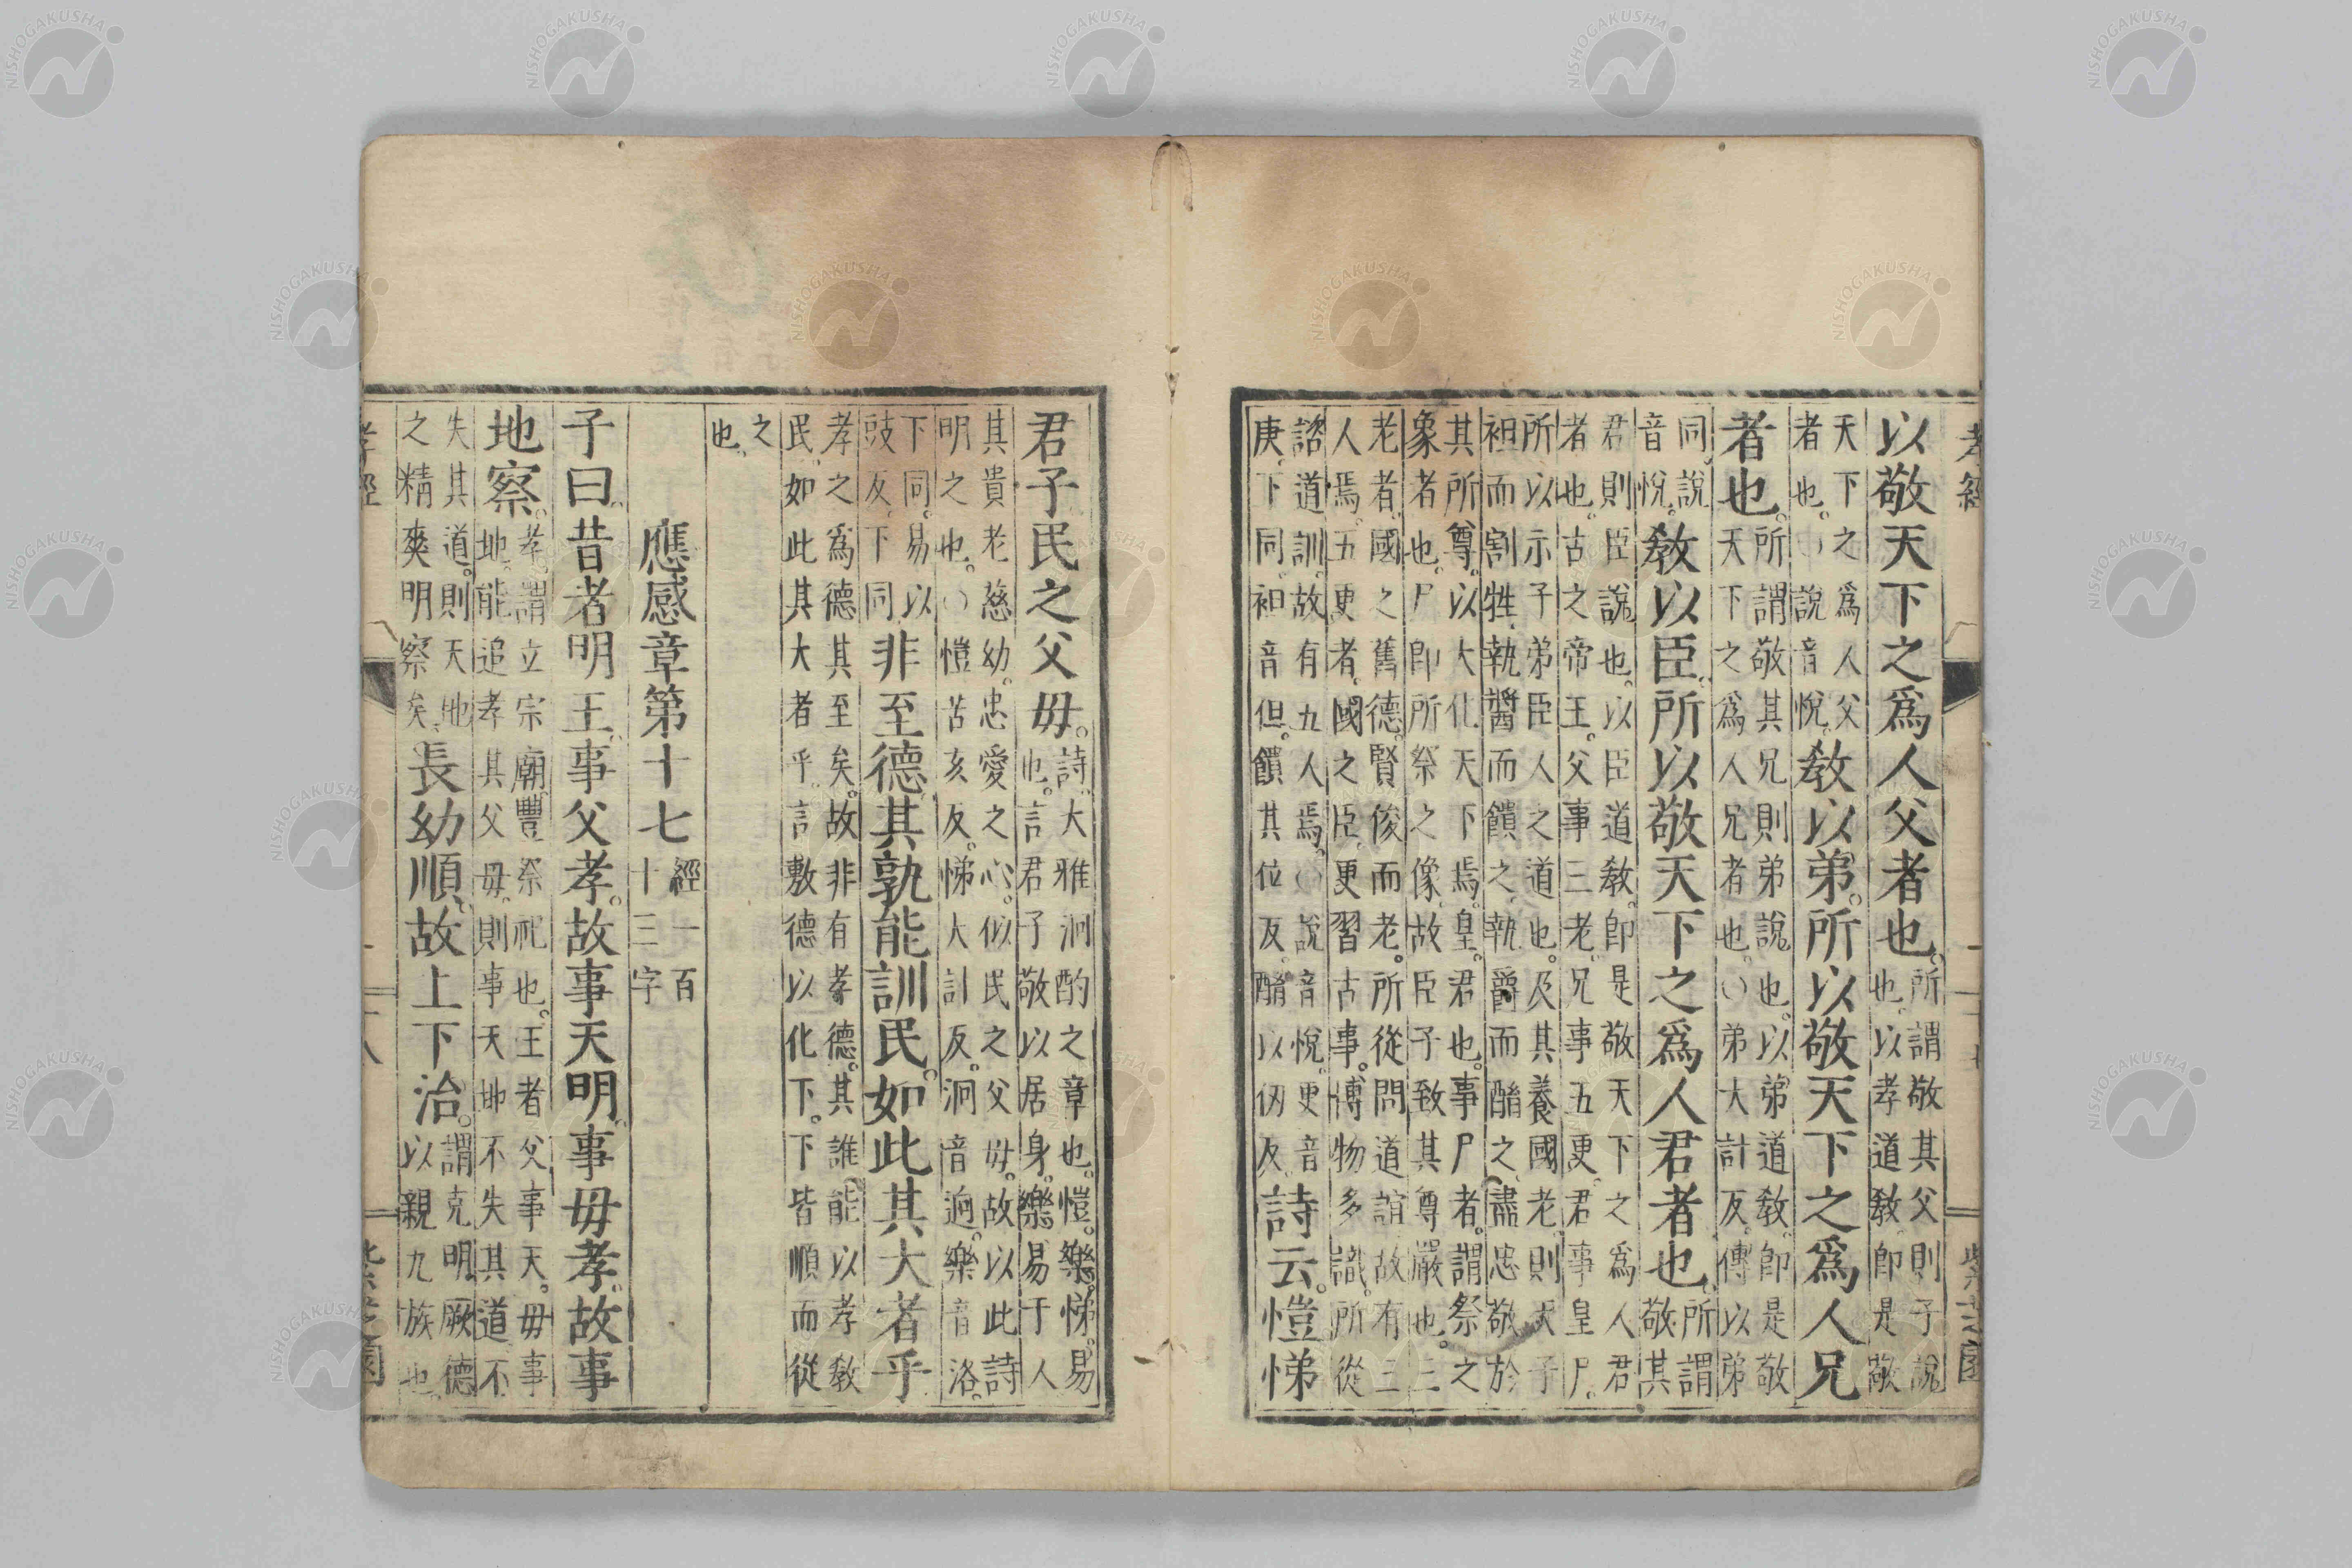 孝經
以敬天下之爲人父者也。
所謂敬其父則子說
也。以孝道敎即是敬
天下之爲人父
者也。〇說音悅。
敎以弟。所以敬天下之爲人兄
者也。
所謂敬其兄則弟說也。以弟道敎。即是敬
天下之爲人兄者也。〇弟大計反。傳以弟
同。說
音悅。
敎以臣。所以敬天下之爲人君者也。
所謂
敬其
君則臣說也。以臣道敎。即是敬天下之爲人君
者也。古之帝王。父事三老。兄事五更。君事皇尸。
所以示子弟臣人之道也。及其養國老。則天子
袒而割牲。執醬而饋之。執爵而酳之。盡忠敬於
其所尊。以大化天下焉。皇。君也。事尸者。謂祭之
象者也。尸即所祭之像。故臣子致其尊嚴也。三
老者。國之舊德。賢俊而老。所從問道誼。故有三
人焉。五更者。國之臣。更習古事。博物多識。所從
諮道訓。故有五人焉。〇說音悅。更音
庚。下同。袒音但。饋其位反。酳以仞反。
詩云。愷悌
君子民之父毋。
詩。大雅泂酌之章也。愷。樂。悌。易
也。言君子敬以居身。樂易于人
其貴老慈幼。忠愛之心。似民之父毋。故以此詩
明之也。〇愷苦亥反。悌大計反。泂音迥。樂音洛。
下同。易以
豉反。下同
非至德其孰能訓民。如此其大者乎
孝之爲德其至矣。故非有孝德。其誰能以孝敎
民。如此其大者乎。言敷德以化下。下皆順而從
之
也。
應感章第十七
經一百
十三字
子曰。昔者明王。事父孝。故事天明。事毋孝。故事
地察。
孝謂立宗廟。豐祭祀也。王者父事天。毋事
地。能追孝其父毋。則事天地不失其道。不
失其道。則天地
之精爽明察矣。
長幼順。故上下治。
謂克明厥德
以親九族也。
孝經
NISHOGAKUSHA